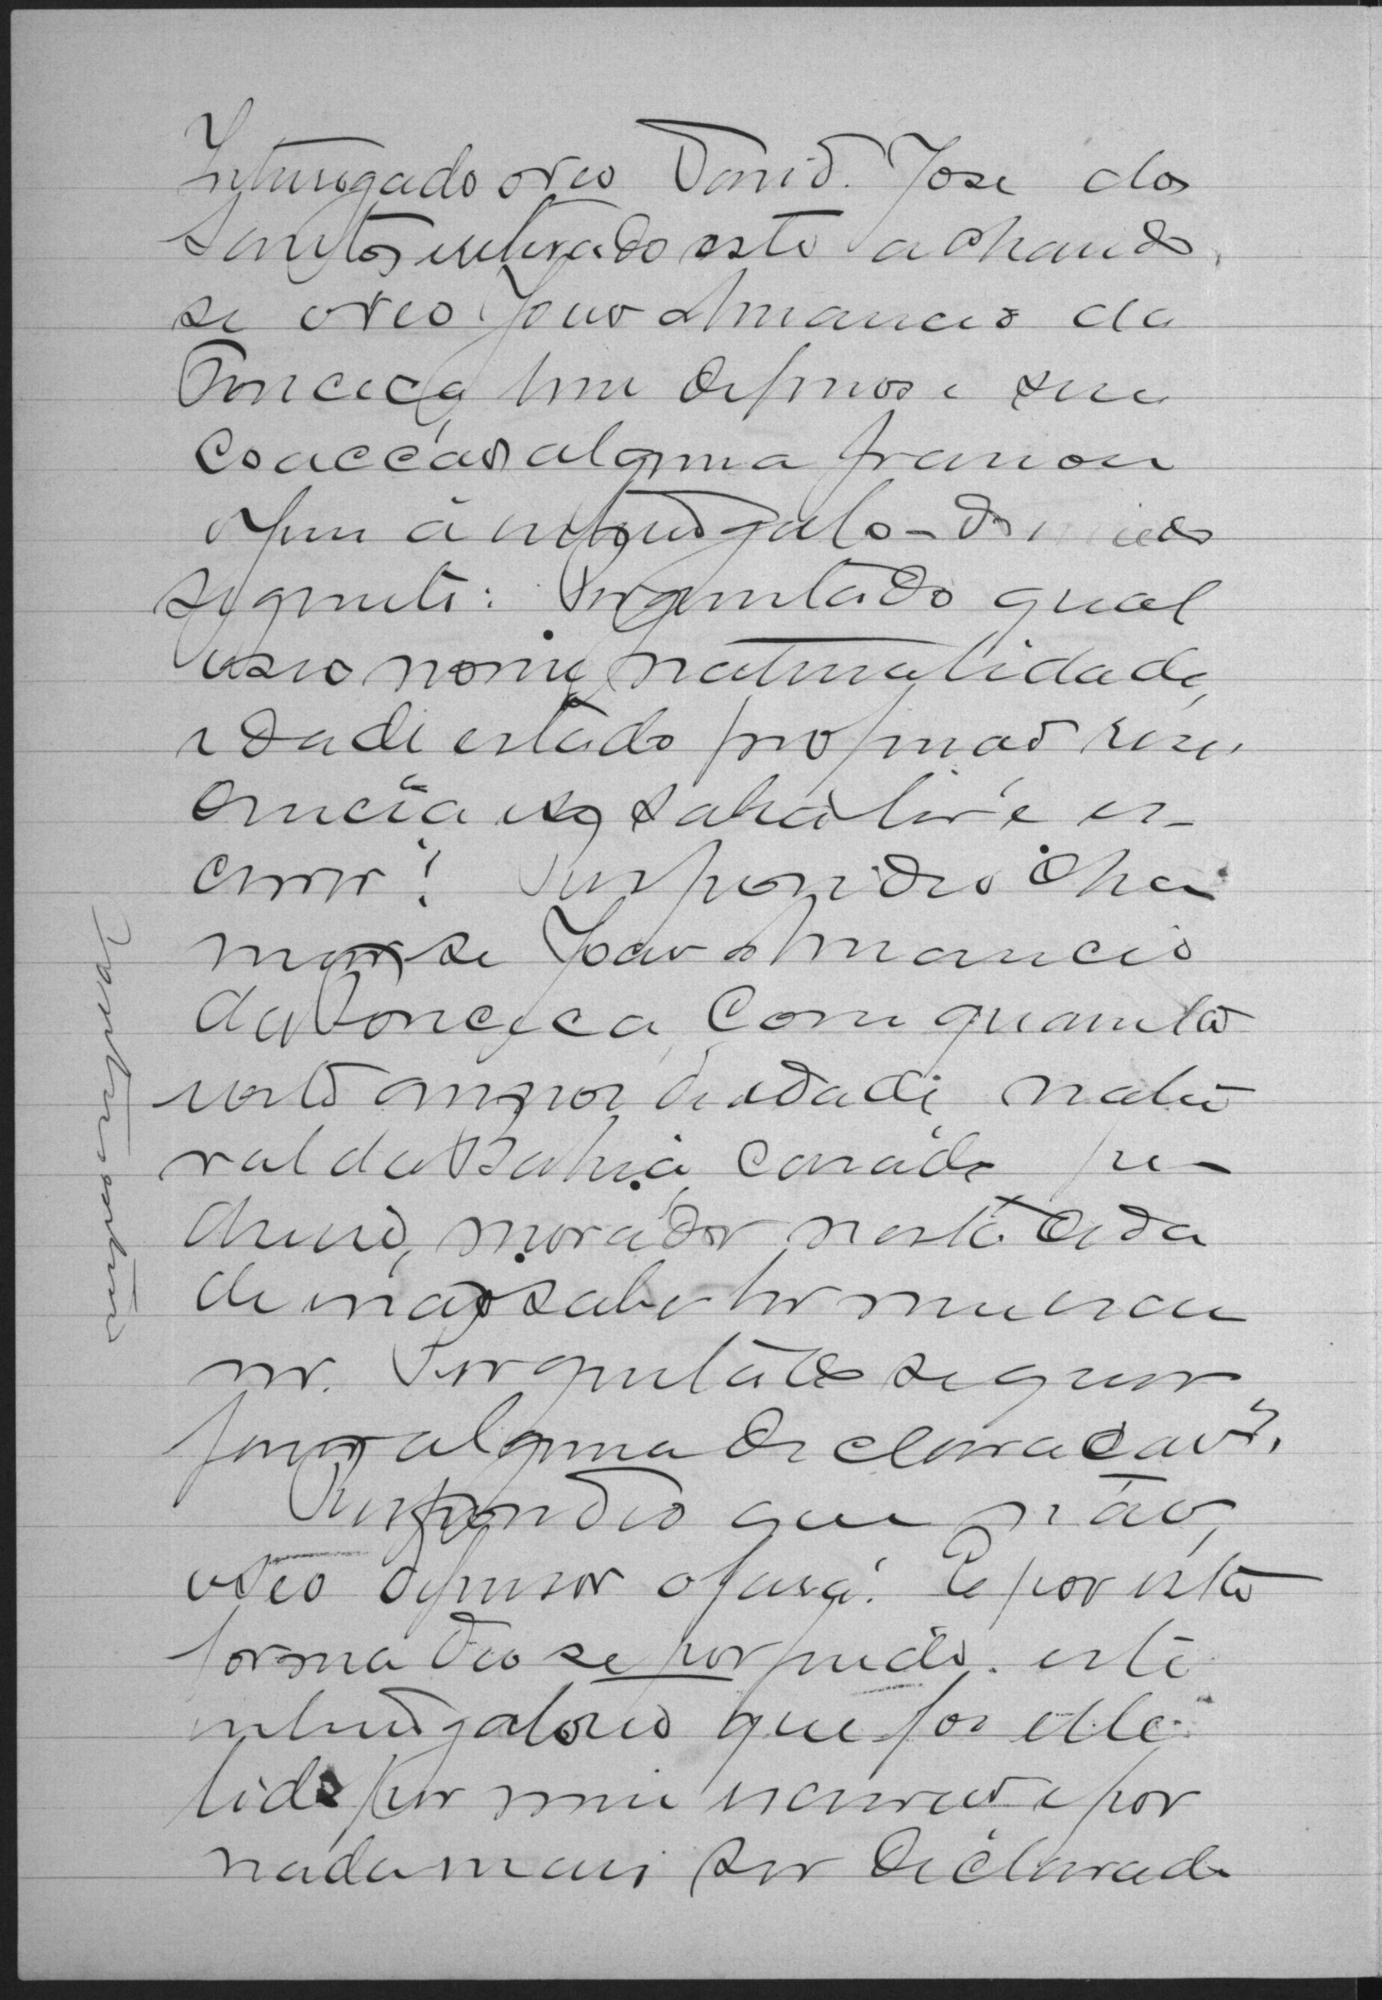 Interrogado o reo David José dos
Santos retirado este achando
se o reo João Amancio da
Fonceca, livre de ferros e sem
coacção alguma passou
o Juiz á interrogalo do modo
seguinte: Perguntado qual
o seo nome, naturalidade,
idade estado profissão resi
dencia e se sabia ler e es-
crever? Respondeo cha
mar-se João Amancio
da Fonceca, com quarenta
annos de idade natu
ral da Bahia, casado pe-
dreiro, morador nesta cida
de não sabe ler nem escre
ver. Perguntado se quer
fazer alguma declaração?
Respondeo que não,
o seo defensor o fará. E por esta
forma deo se por findo este
interrogatorio que foi elle
lido por mim escrivão e por
nada mais ser declarado